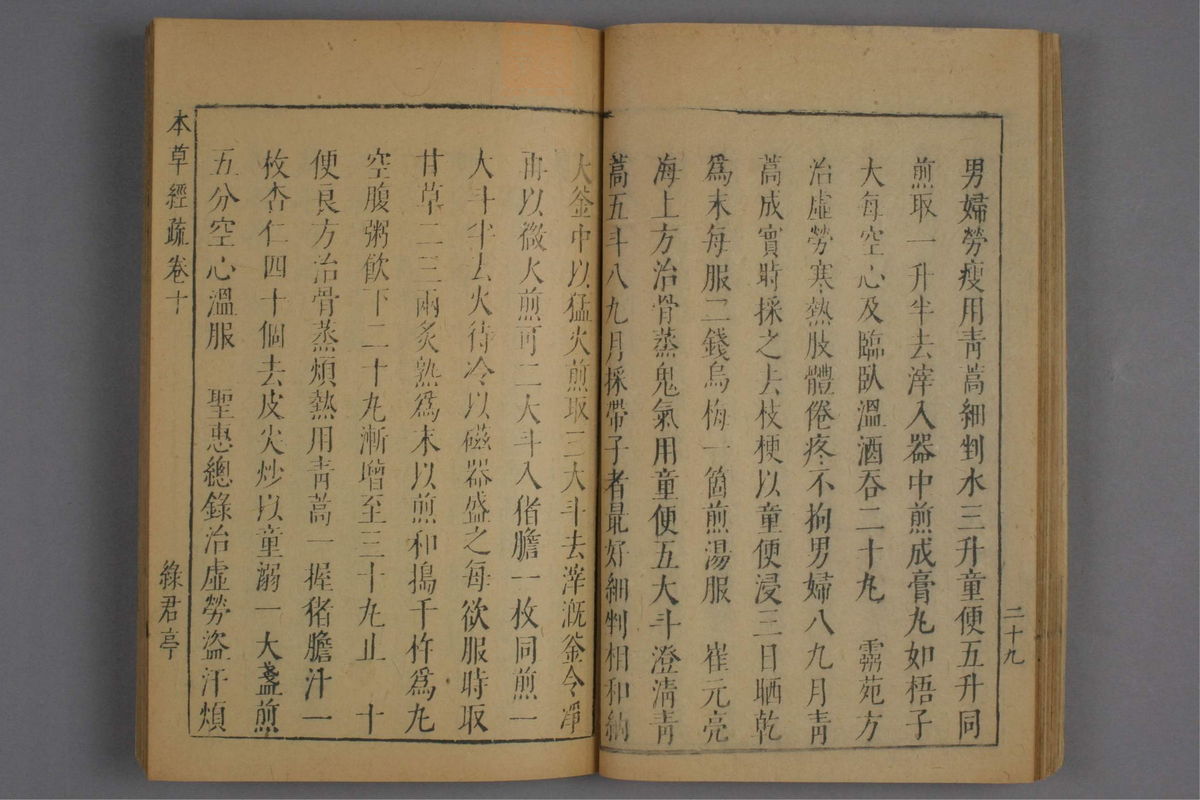 二十九
男婦勞瘦用青蒿細剉水三升童便五升同
煎取一升半去滓入器中煎成膏丸如梧子
大每空心及臨臥溫酒吞二十丸　靈苑方
治虛勞寒熱肢體倦疼不拘男婦八九月青
蒿成實時採之去枝梗以童便浸三日晒乾
爲末每服二錢烏梅一箇煎湯服　崔元亮
海上方治骨蒸鬼氣用童便五大斗澄清青
蒿五斗八九月採帶子者最好細剉相和納
大釜中以猛火煎取三大斗去滓漑釜令凈
再以微火煎可二大斗入猪膽一枚同煎一
大斗半去火待冷以磁器盛之每欲服時取
甘草二三兩炙熟爲末以煎和搗千杵爲丸
空腹粥飮下二十丸漸增至三十丸止　十
便良方治骨蒸煩熱用青蒿一握猪膽汁一
枚杏仁四十個去皮尖炒以童溺一大盞煎
五分空心溫服　聖惠總錄治虛勞盜汗煩
本草經疏卷十
綠君亭